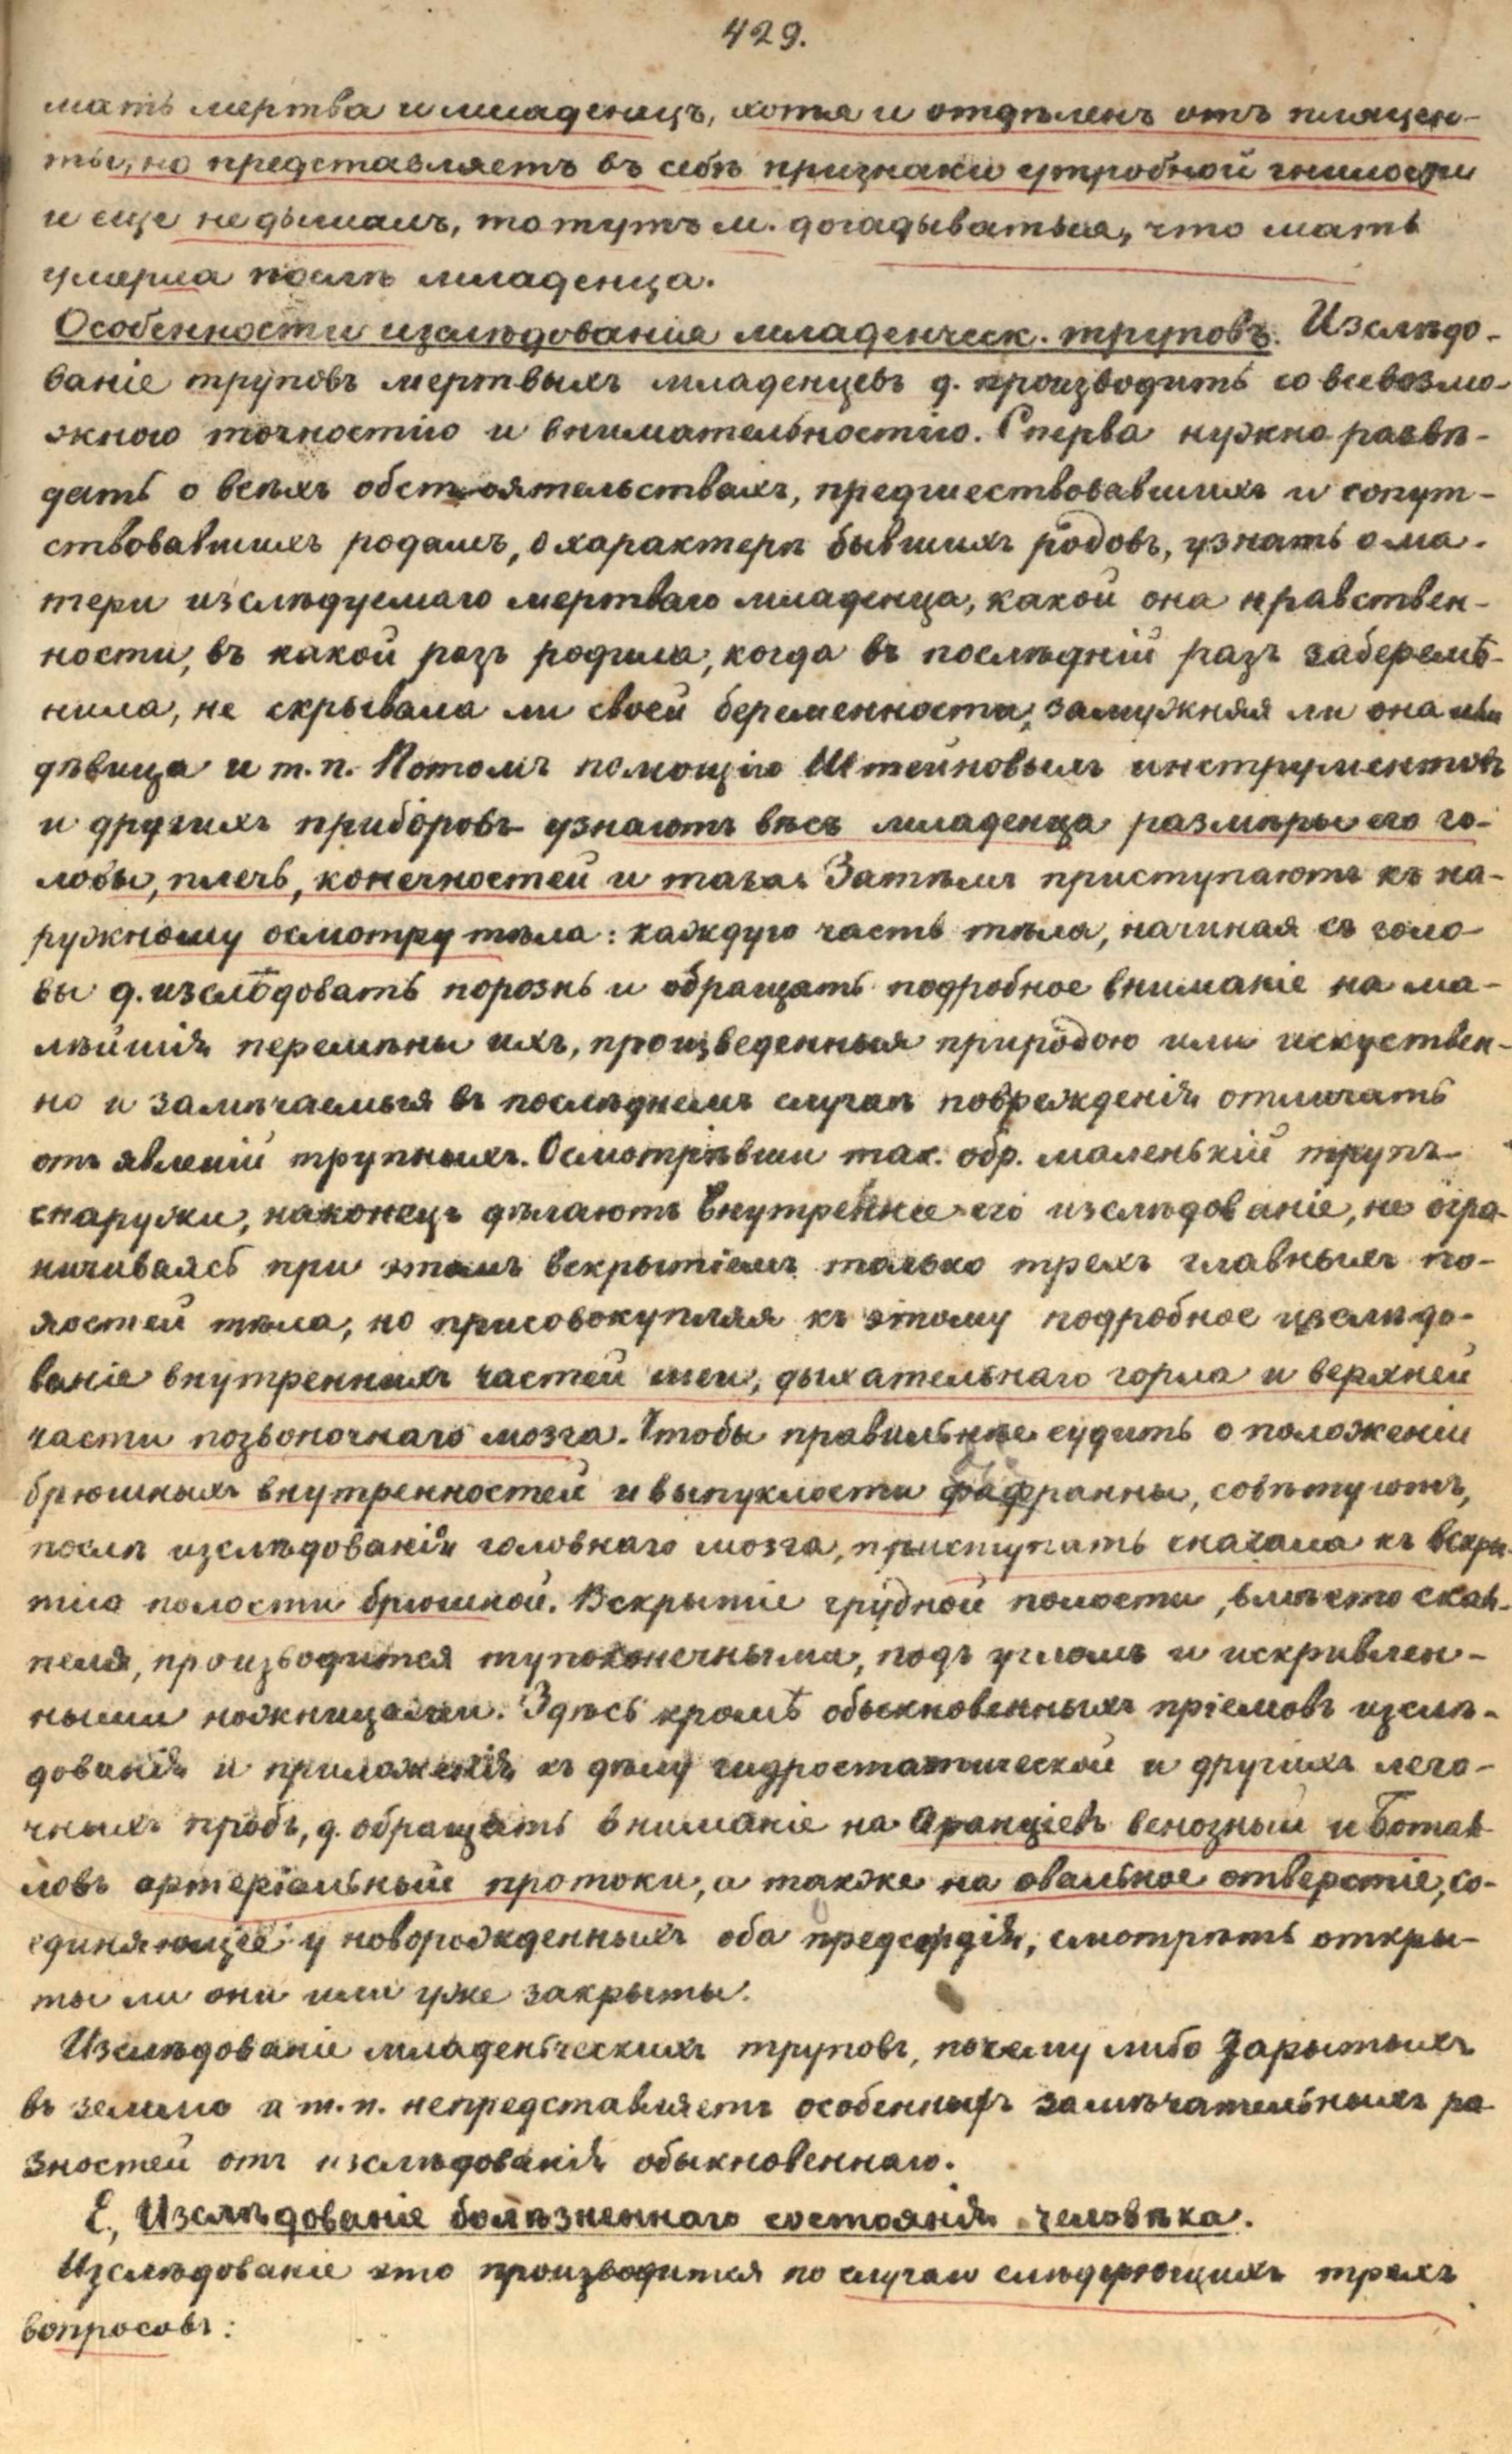 429.
мать мертва и младенецъ, хотя и отдѣленъ отъ плацен-
ты, но представляетъ въ себѣ признаки утробной гнилости
и еще не дышалъ, то тутъ м. догадываться, что мать
умерла послѣ младенца.
Особенности изслѣдованія младенческ. труповъ. Изслѣдо-
ваніе труповъ мертвыхъ младенцевъ д. производить со всевозмо-
жною точностію и внимательностію. Сперва нужно развѣ-
дать о всѣхъ обстоятельствахъ, предшествовавшихъ и сопут-
ствовавшихъ родамъ, о характерѣ бывшихъ родовъ, узнать о ма-
тери изслѣдуемаго мертваго младенца, какой она нравствен-
ности, въ какой разъ родила, когда въ послѣдній разъ заберемѣ-
нила, не скрывала ли своей беременности, замужняя ли она или
дѣвица и т. п. Потомъ помощію Штейновыхъ инструментовъ
и другихъ приборовъ узнаютъ вѣсъ младенца размѣры его го-
ловы, плечъ, конечностей и таза. Затѣмъ приступаютъ къ на-
ружному осмотру тѣла: каждую часть тѣла, начиная съ голо-
вы д. изслѣдовать порознь и обращать подробное вниманіе на ма-
лѣйшія перемѣны ихъ, произведенныя природою или искуствен-
но и замѣчаемыя въ послѣднемъ случаѣ поврежденія отличать
отъ явленій трупныхъ. Осмотрѣвши так. обр. маленькій трупъ
снаружи, наконецъ дѣлаютъ внутреннее его изслѣдованіе, не огра-
ничиваясь при этомъ вскрытіемъ только трехъ главныхъ по-
лостей тѣла, но присовокупляя къ этому подробное изслѣдо-
ваніе внутреннихъ частей шеи, дыхательнаго горла и верхней
части позвоночнаго мозга. Чтобы правильнѣе судить о положеніи
брюшныхъ внутренностей и выпуклости діафрагмы, совѣтуютъ,
послѣ изслѣдованія головнаго мозга, приступать сначала къ вскры-
тію полости брюшной. Вскрытіе грудной полости, вмѣсто скаль-
пеля, производится тупоконечными, подъ угломъ и искривлен-
ными ножницами. Здѣсь кромѣ обыкновенныхъ пріемовъ изслѣ-
дованія и приложенія къ дѣлу гидростатической и другихъ лего-
чныхъ пробъ, д. обращать вниманіе на Аранціевъ венозный и Ботал-
ловъ артеріальный протоки, а также на овальное отверстіе, со-
единяющее у новорожденныхъ оба предсердія, смотрѣть откры-
ты ли они или уже закрыты.
Изслѣдованіе младенческихъ труповъ, почему либо зарытыхъ
въ землю и т. п. непредставляетъ особенныхъ замѣчательныхъ ра-
зностей отъ изслѣдованія обыкновеннаго.
Е, Изслѣдованіе болѣзненнаго состоянія человѣка.
Изслѣдованіе это производится по случаю слѣдующихъ трехъ
вопросовъ: